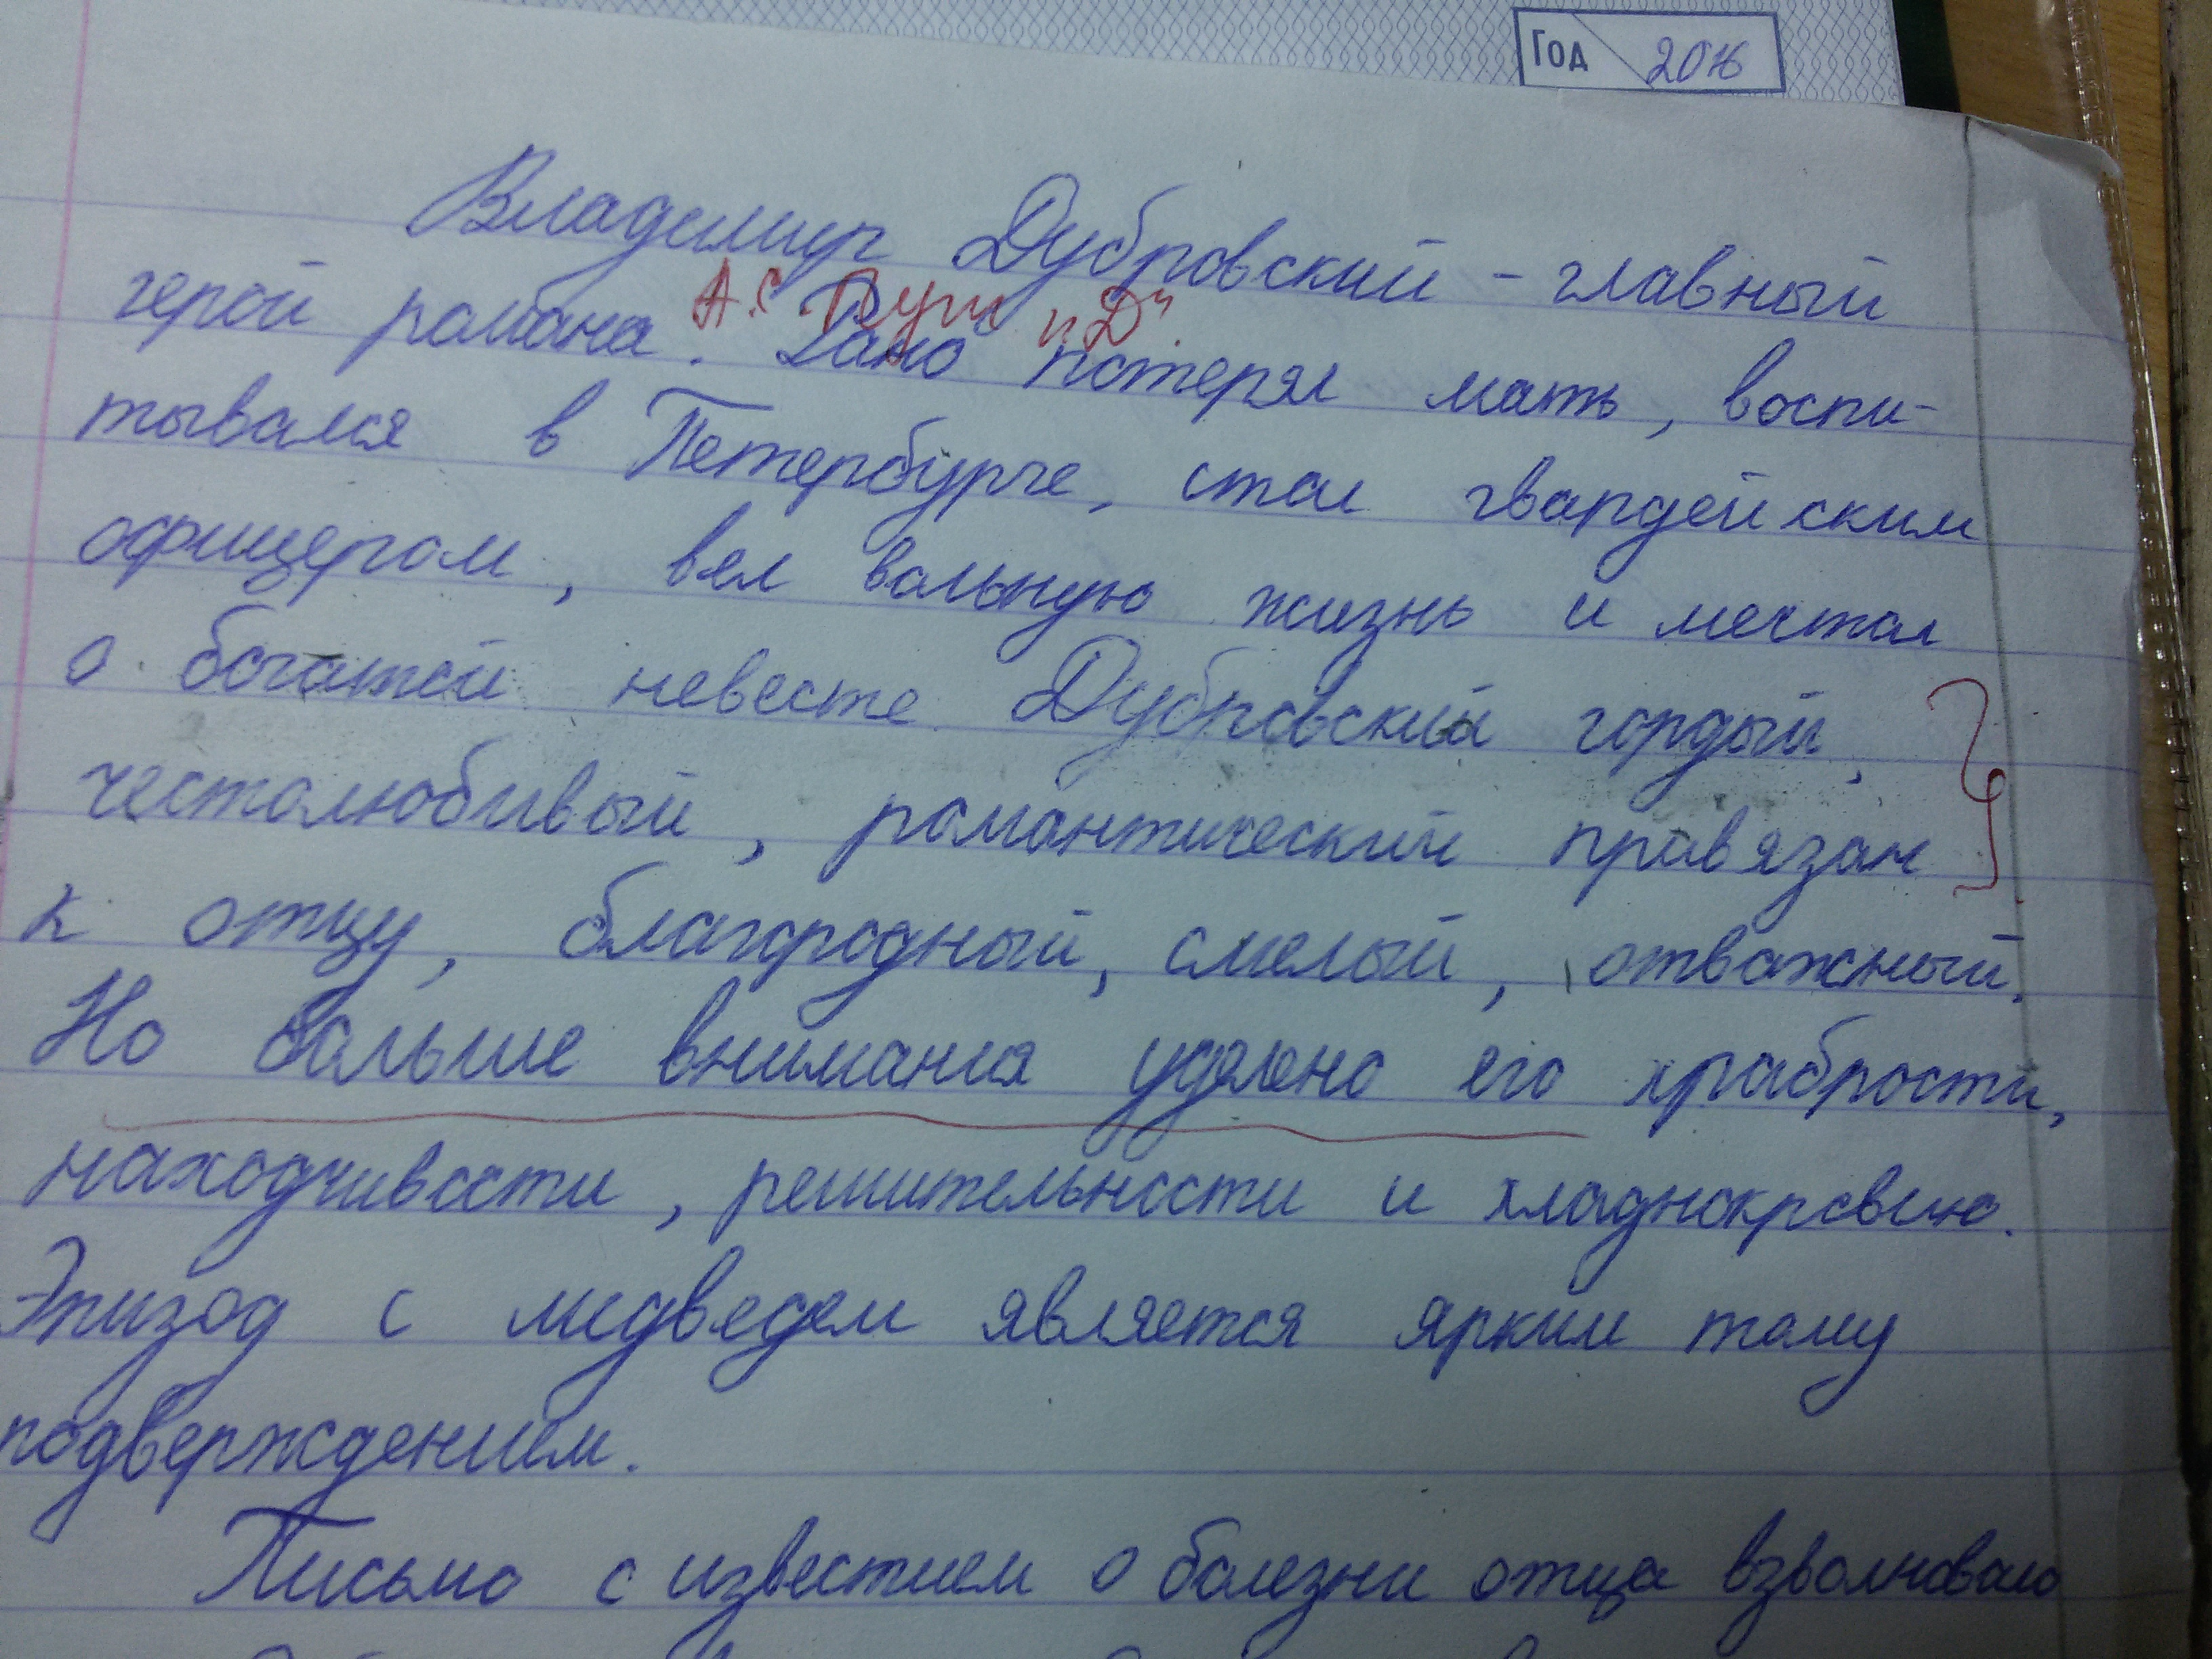 Год 2016
Владимир Дубровский - главный
А.С Пуш "Д"
герой романа. Рано потерял мать, воспи-
тывался в Петербурге, стал гвардейским
офицером, вел вольную жизнь и мечтал
о богатой невесте Дубровский гордый,
честолюбивый, романтический привязан
к отцу, благородный, смелый, отважный.
Но больше внимания уделено его храбрости,
находчивости, решительности и хладнокровию.
Эпизод с медведем является ярким тому
подверждением.
Письмо с известием о болезни отца взволновало